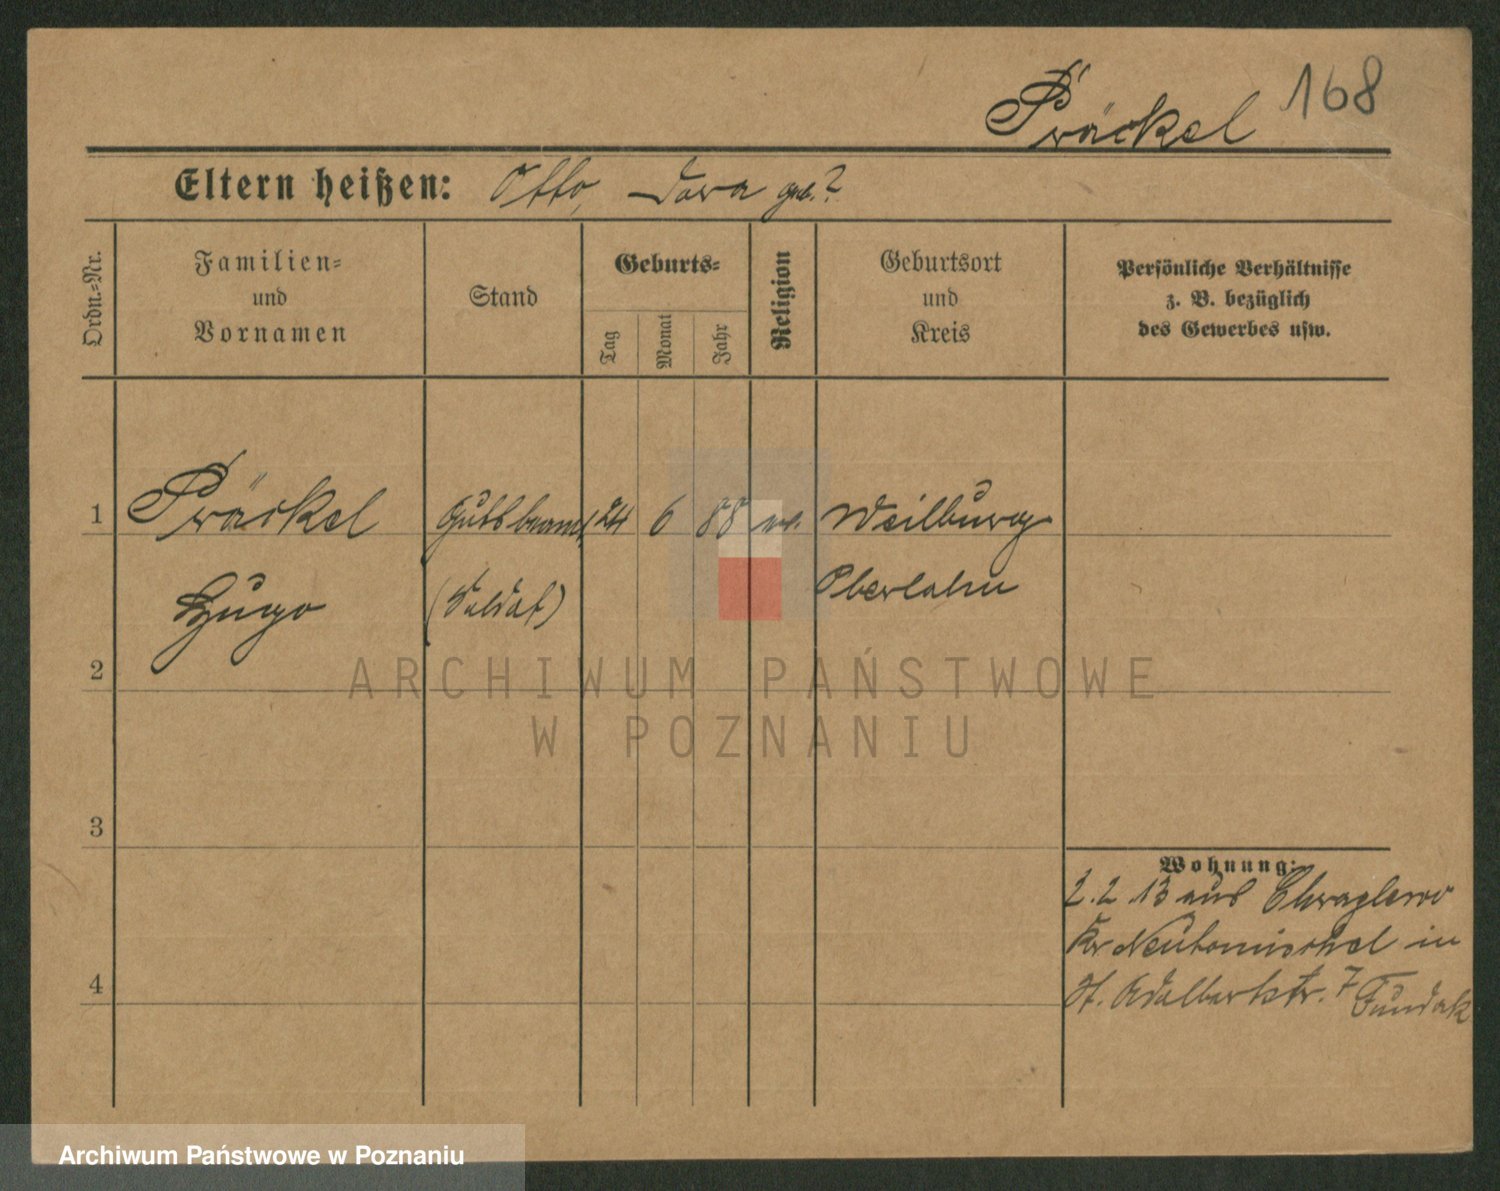 168
Präckel
Eltern heißen: Otto, Dora geb. ?
Ordn.-Nr.
Familien-
und
Vornamen
Stand
Geburts-
Tag
Monat
Jahr
Religion
Geburtsort
und
Kreis
Persönliche Verhältnisse
z. B. bezüglich
des Gewerbes usw.
1 Präckel Gutsbeamt. 24 6 88 ev. Weilburg
Hugo (Soldat) Oberlahn
2
ARCHIWUM PAŃSTWOWE
W POZNANIU
3
Wohnung:
2.2.13 aus
Kr Neutomischel in
4
St. Adalbertstr. 7
Archiwum Państwowe w Poznaniu